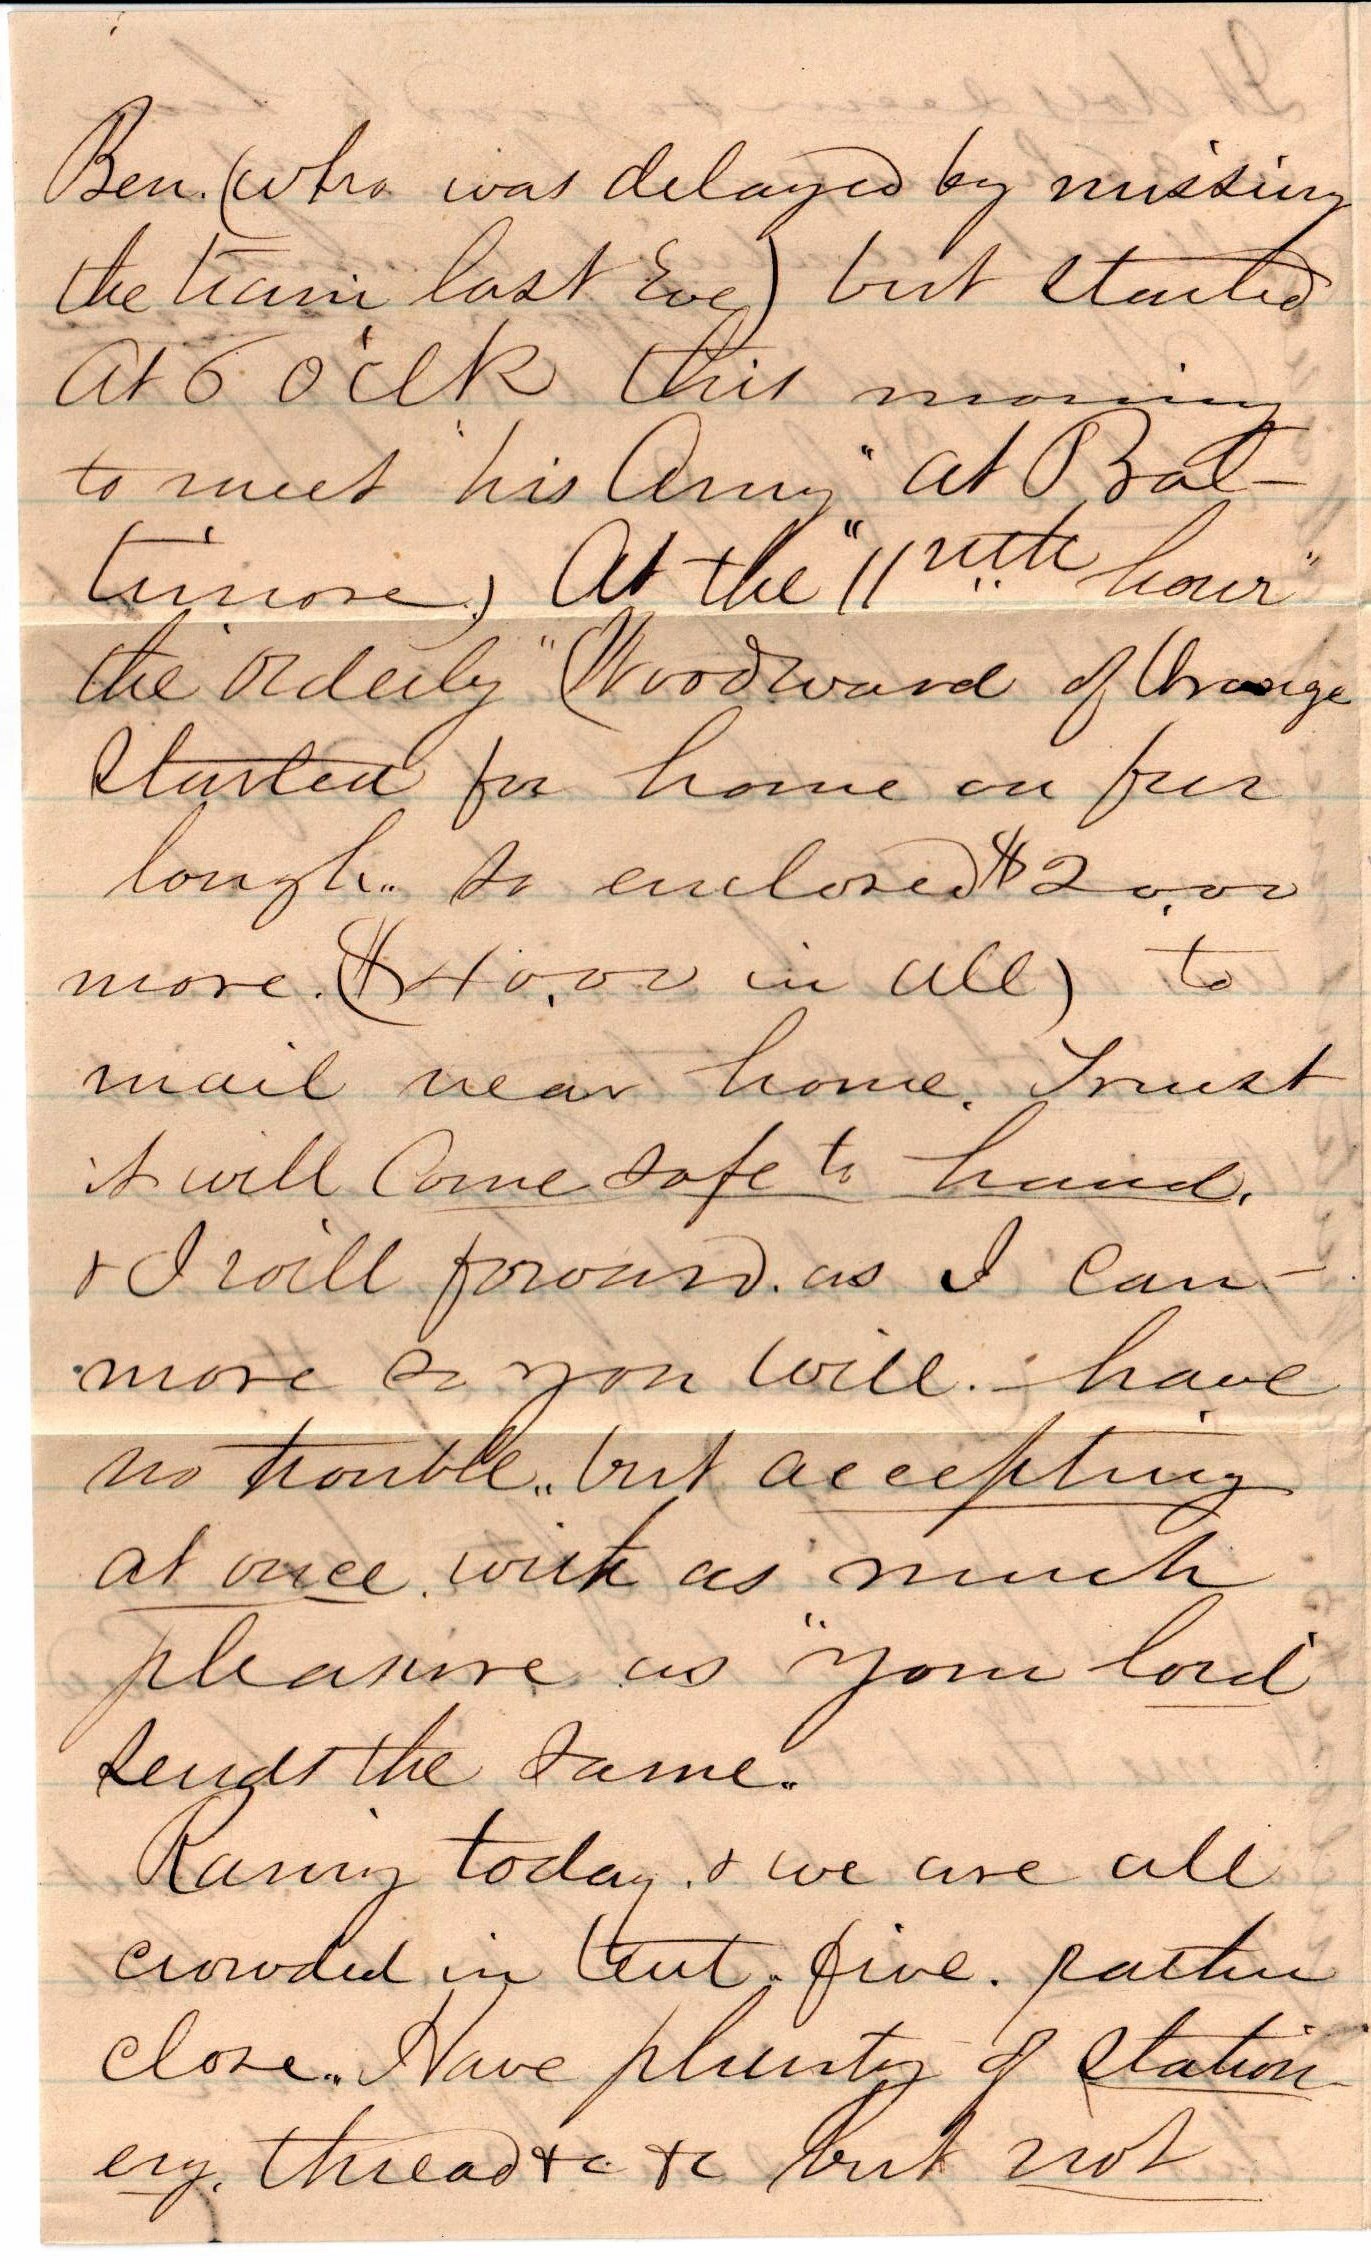 Ben. (who was delayed by missing
the train last Eve) but started
at 6 o'clk this morning
to meet "his Army" at Bal-
timore.) At the "11nth hour"
the Orderly" (Woodward of Orange
started for home on fur
lough.. so enclosed $20.00
more. ($40.00 in all) to
mail near home. Trust
it will come safe to hand.
& I will forward. as I can-
more so you will. have
no trouble.. but accepting
at once. with as much
pleasure as "your lord"
sends the same..
Raining today. & we are all
crowded in tent. five. rather
close.. Have plenty of station-
ery. thread &c &c but not